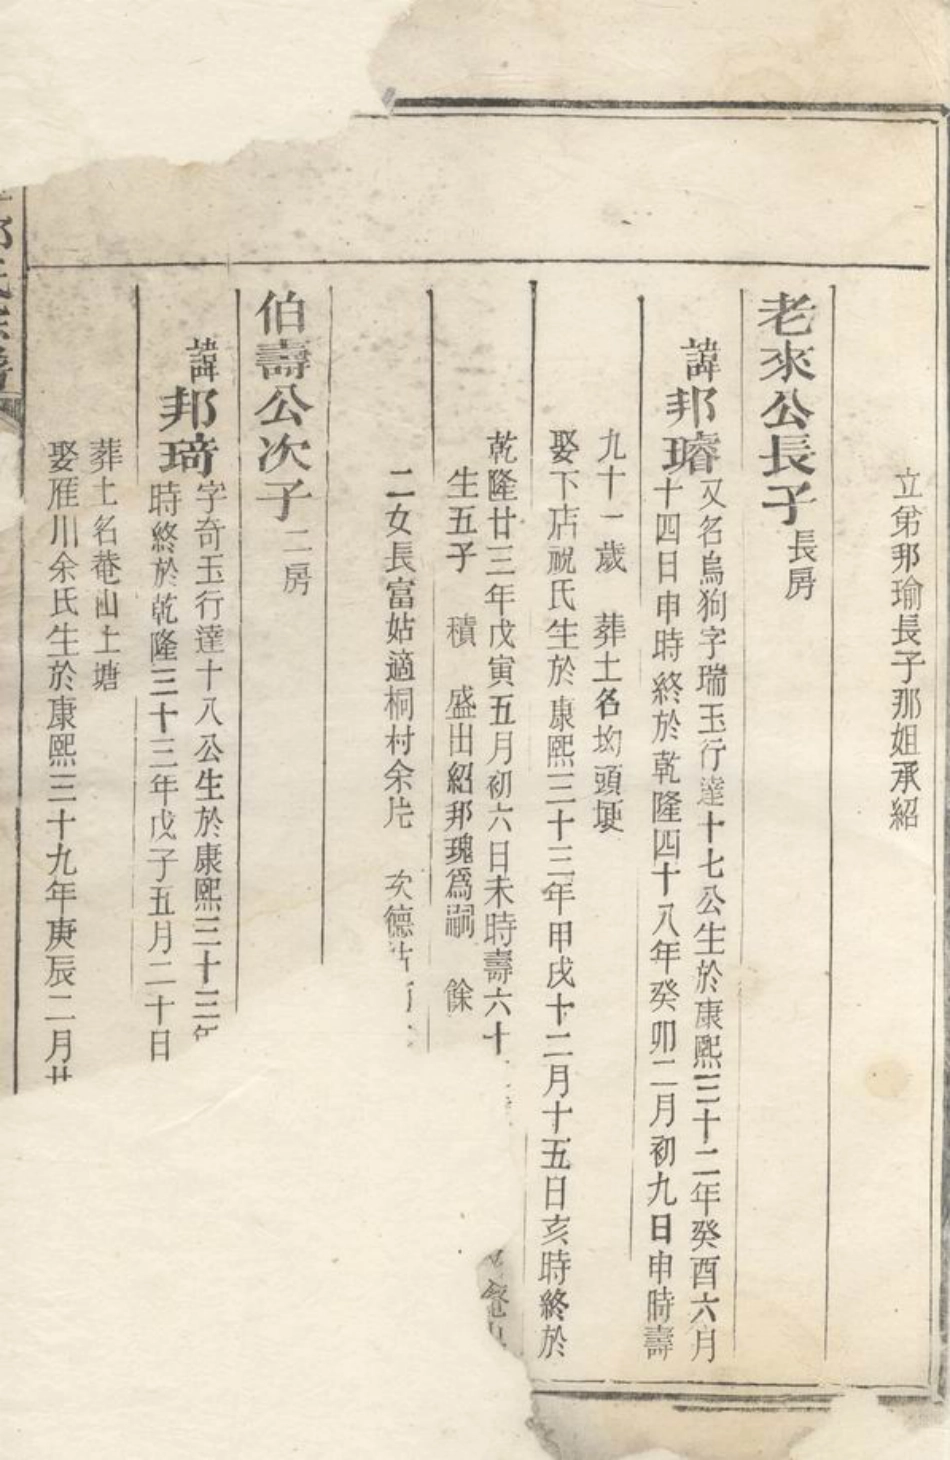 立弟邦瑜長子那姐承紹
老來公長子長房
諱邦璿
又名烏狗字瑞玉行達十七公生於康熙三十二年癸酉六月
十四日申時終於乾隆四十八年癸卯二月初九日申時壽
九十一歲 葬土名坳頭埂
娶下店祝氏生於康熙三十三年甲戌十二月十五日亥時終於
乾隆廿三年戊寅五月初六日未時壽六十
生五子 積 盛出紹邦瑰爲嗣 餘
二女長富姑適桐村余 次德
伯壽公次子二房
諱邦琦
字奇玉行達十八公生於康熙三十三年
時終於乾隆三十三年戊子五月二十日
葬土名菴山土塘
娶雁川余氏生於康熙三十九年庚辰二月廿
氏宗譜